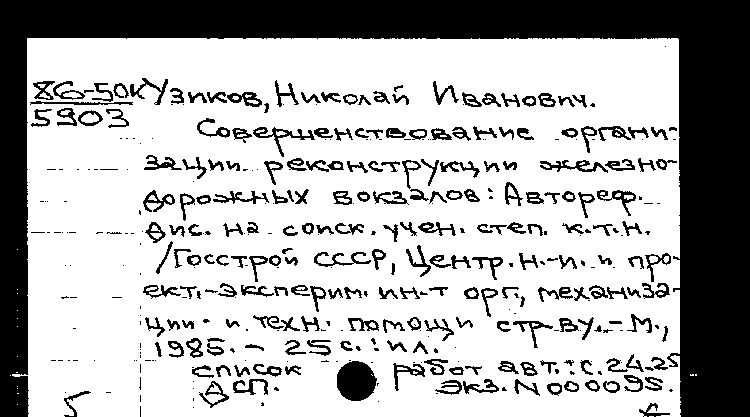 86-50к Узиков, Николай Иванович.
5903
Совершенствование органи-
зации реконструкции железно-
дорожных вокзалов: Автореф.
Дис. на соиск. учен. степ. к.т.н.
/Госстрой СССР, Центр. н.-и. и про-
ект.-эксперим. ин-т орг., механиза-
ции и техн. помощи стр-ву. - М.,
1985. - 25 с.: ил.
список работ авт.: с. 24.25
ДСП. Экз. N 000095.
5